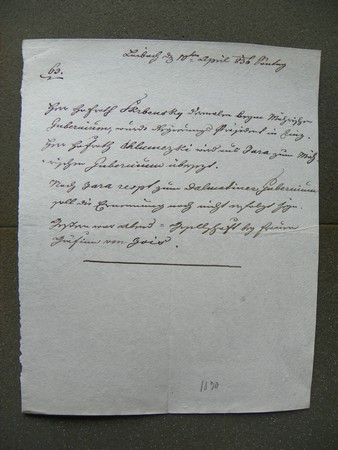 Laibach d 10ten April 836 Sontag
60.
Herr Hofrath Skrbensky dermalen beym Mährischen
Gubernium, wurde Regierungs Präsident in Linz.
Herr Hofrath wird aus Zara zum Mäh
rischen Gubernium übersezt.
Nach Zara respt zum Dalmatiner Gubernium
soll die Ernennung noch nicht erfolgt seyn.
Gestern war abend = Gesellschaft bey Frauen
Gräfinn von
1830